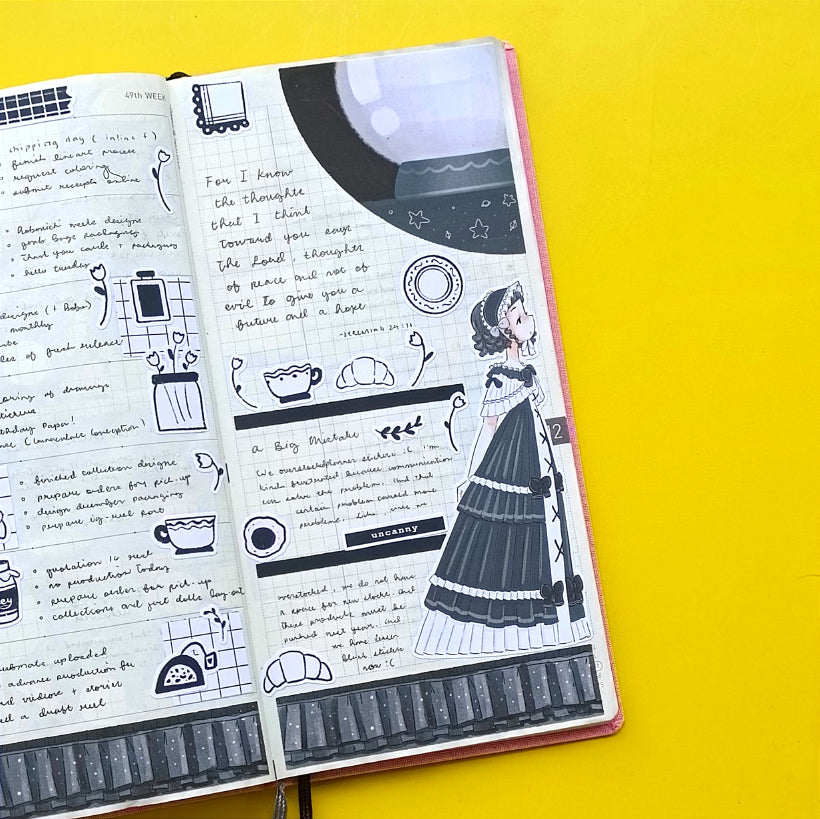 49th WEEK
shipping day (
finish lineart process
request coloring
submit receipts online
hobonichi weeks designs
thank you cards + packaging
hello tuesday
designs (+ hobo)
monthly
of fresh release
coloring of drawings
paper!
(immaculate conception)
finished collection designs
prepare orders for pick-up
design december packaging
prepare
quotation
no production today
prepare order for pick-up
collections and
uploaded
advance production for
videos + stories
a draft reel
For I know
the thoughts
that I think
toward you says
the Lord, thoughts
of peace and not of
evil to give you a
future and a hope
-Jeremiah
a Big Mistake
We overstocked planner stickers :( I'm
kinda frustrated because communication
can solve the problem. And that
certain problem caused more
problems. Like
uncanny
overstocked, we do not have
a space for new stocks. And
these products must be
pushed next year. And
we have lesser
blank stickers
now :(
2